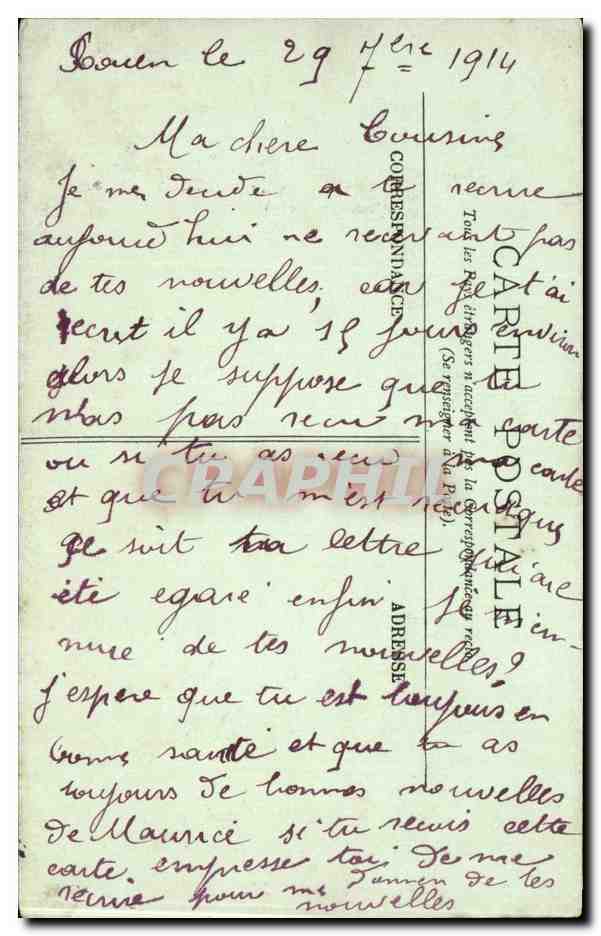 Rouen le 29 7bre 1914
Ma chere Cousine
Je me decide a te recrire
aujourd'hui ne recevant pas
de tes nouvelles, car je t'ai
ecrit il y a 15 jours environ
alors je suppose que tu
m'as pas recu ma carte
ou si tu as recu ma carte
et que tu m'est
se soit ta lettre qui are
été egaré enfin je m'en-
nuie de tes nouvelles?
J'espere que tu est toujours en
bonne santé et que tu as
toujours de bonnes nouvelles
de Maurice si tu recois cette
carte empresse toi de me
recrire pour me donner de tes
nouvelles
CARTE POSTALE
Tous les Pays étrangers n'acceptent pas la Correspondance au recto
(Se renseigner à la Poste).
CORRESPONDANCE
ADRESSE